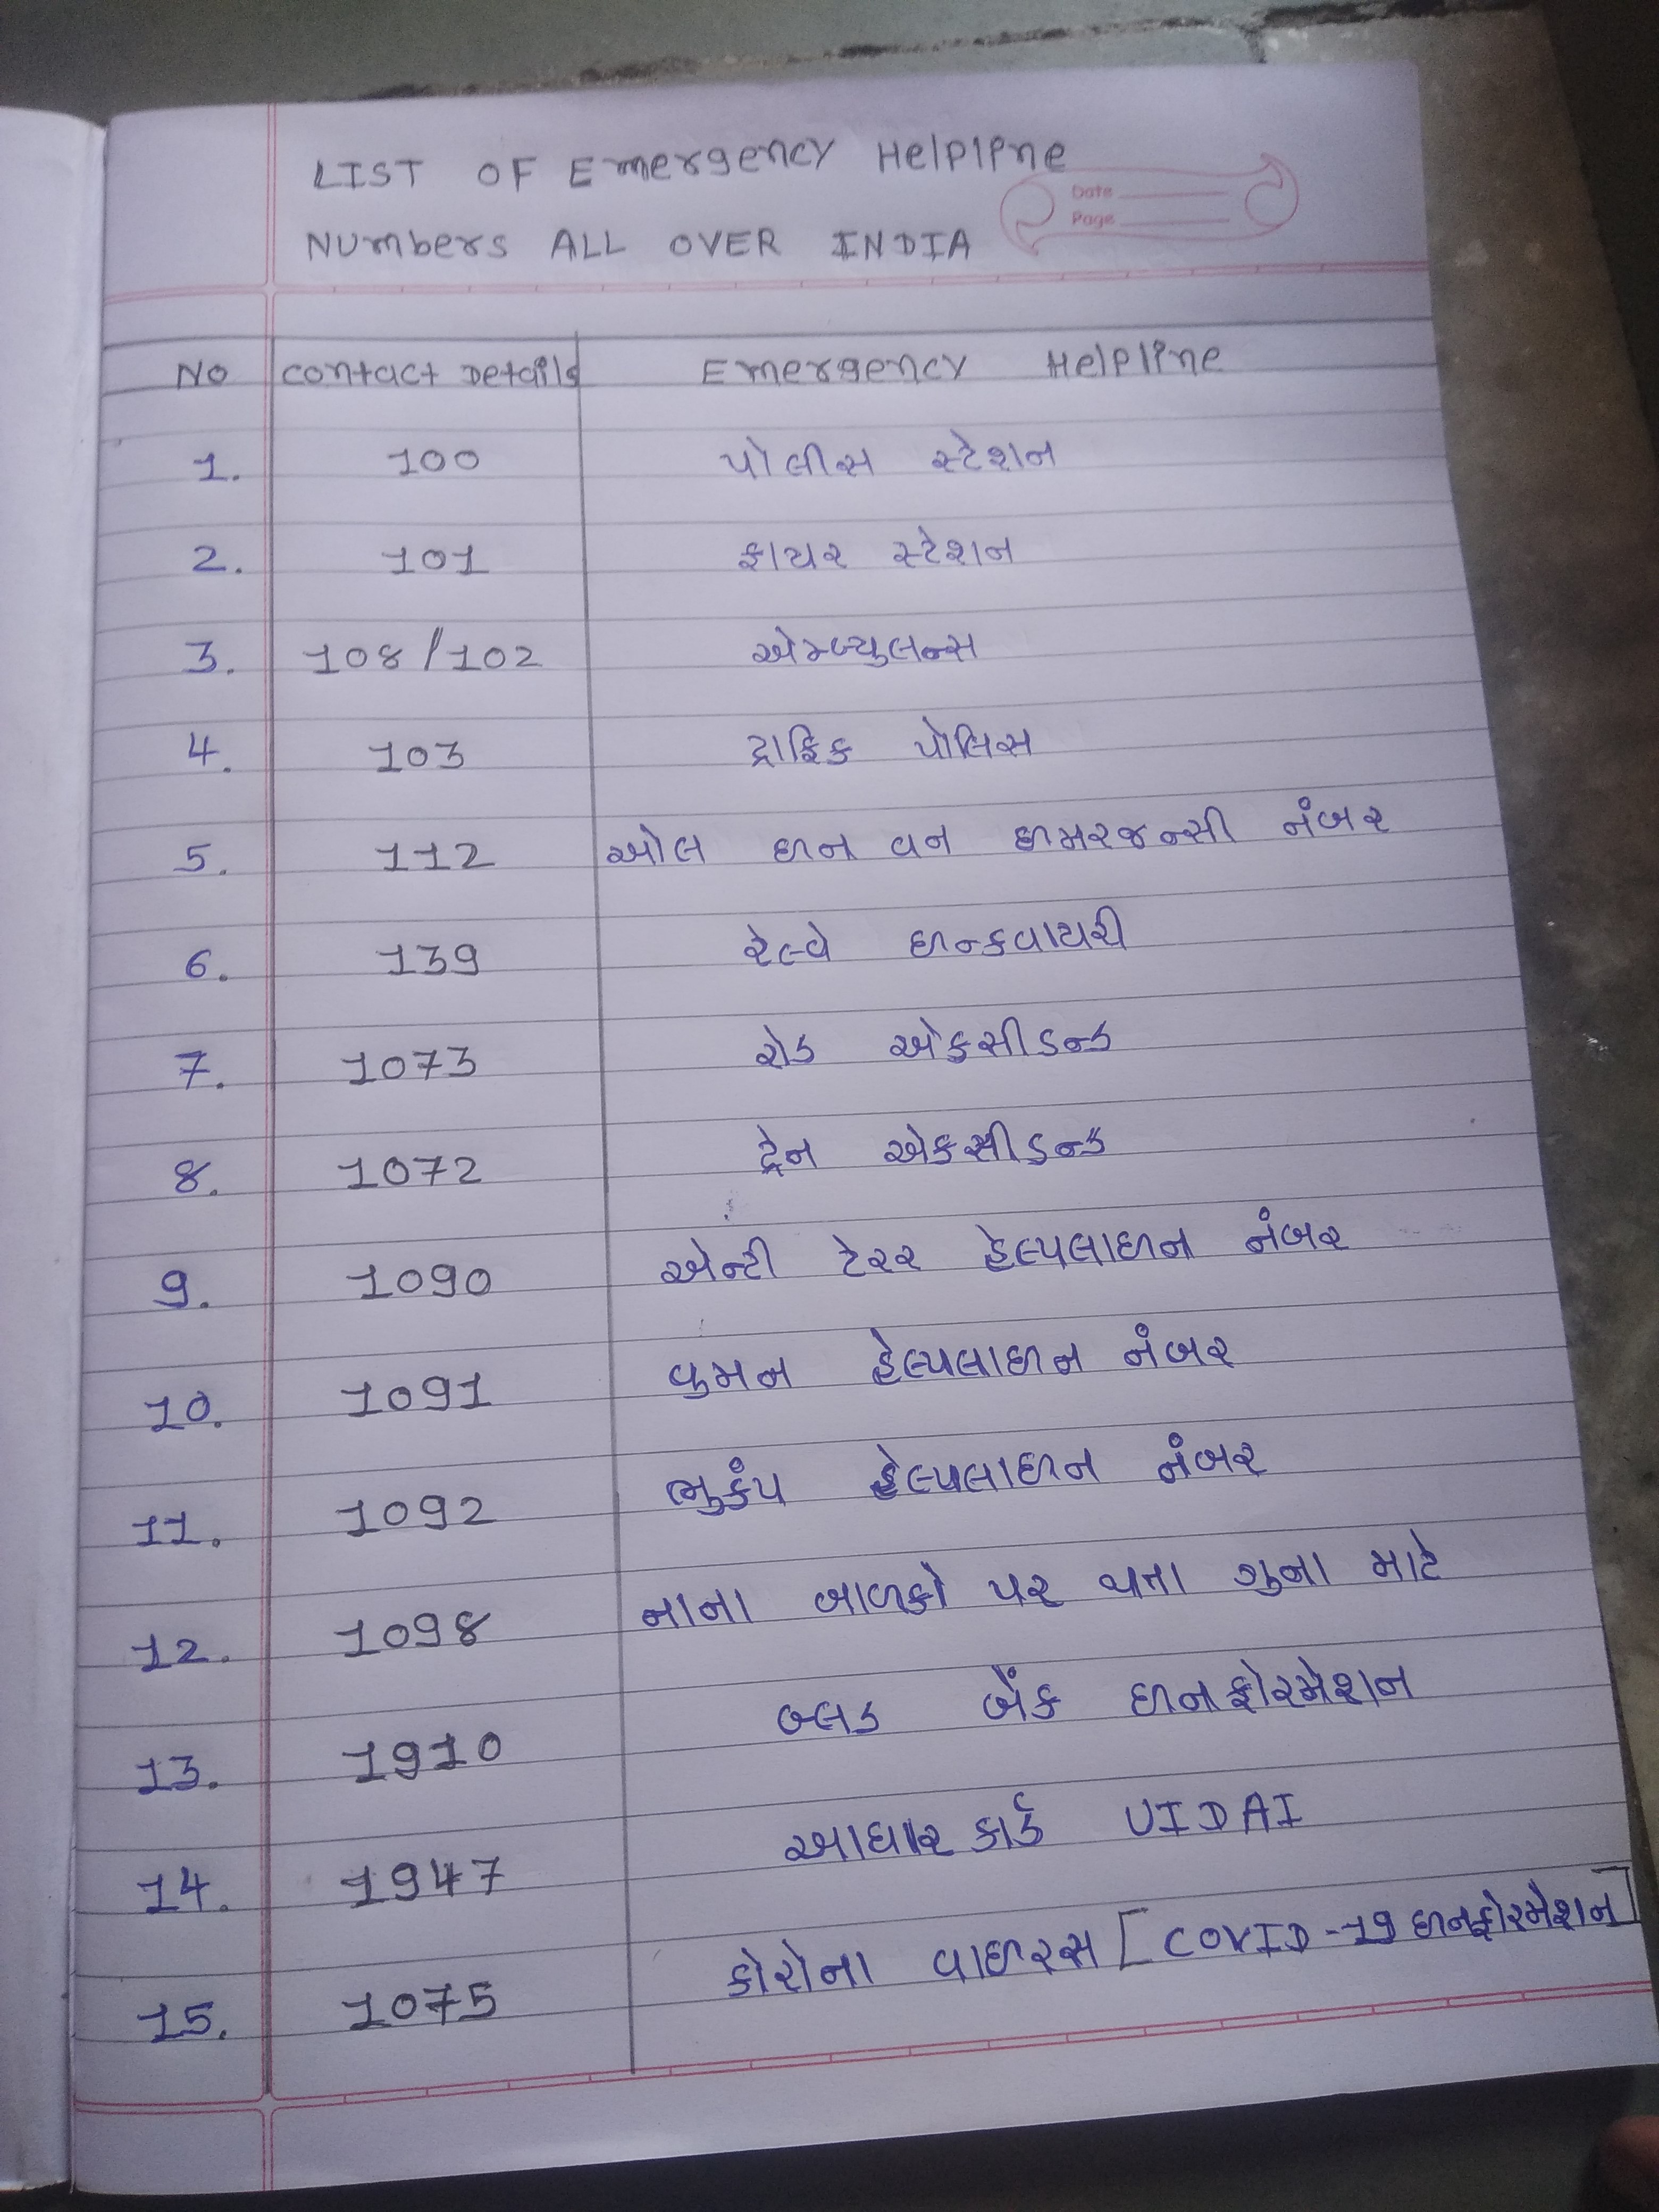 LIST OF Emergency Helpline
Date
Page
Numbers ALL OVER INDIA
No contact Details Emergency Helpline
1. 100 પોલીસ સ્ટેશન
2. 101 ફાયર સ્ટેશન
3. 108/102 એમ્બ્યુલન્સ
4. 103 ટ્રાફિક પોલિસ
5. 112 ઓલ ઇન વન ઇમરજન્સી નંબર
6. 139 રેલ્વે ઇન્કવાયરી
7. 1073 રોડ એકસીડન્ડ
8. 1072 ટ્રેન એકસીડન્ડ
9. 1090 એન્ટી ટેરર હેલ્પલાઇન નંબર
10. 1091 વુમન હેલ્પલાઇન નંબર
11. 1092 ભુકંપ હેલ્પલાઇન નંબર
12. 1098 નાના બાળકો પર થતા ગુના માટે
13. 1910 બ્લડ બેંક ઇનફોરમેશન
14. 1947 આધાર કાર્ડ UIDAI
15. 1075 કોરોના વાઇરસ [COVID-19 ઇનફોરમેશન]